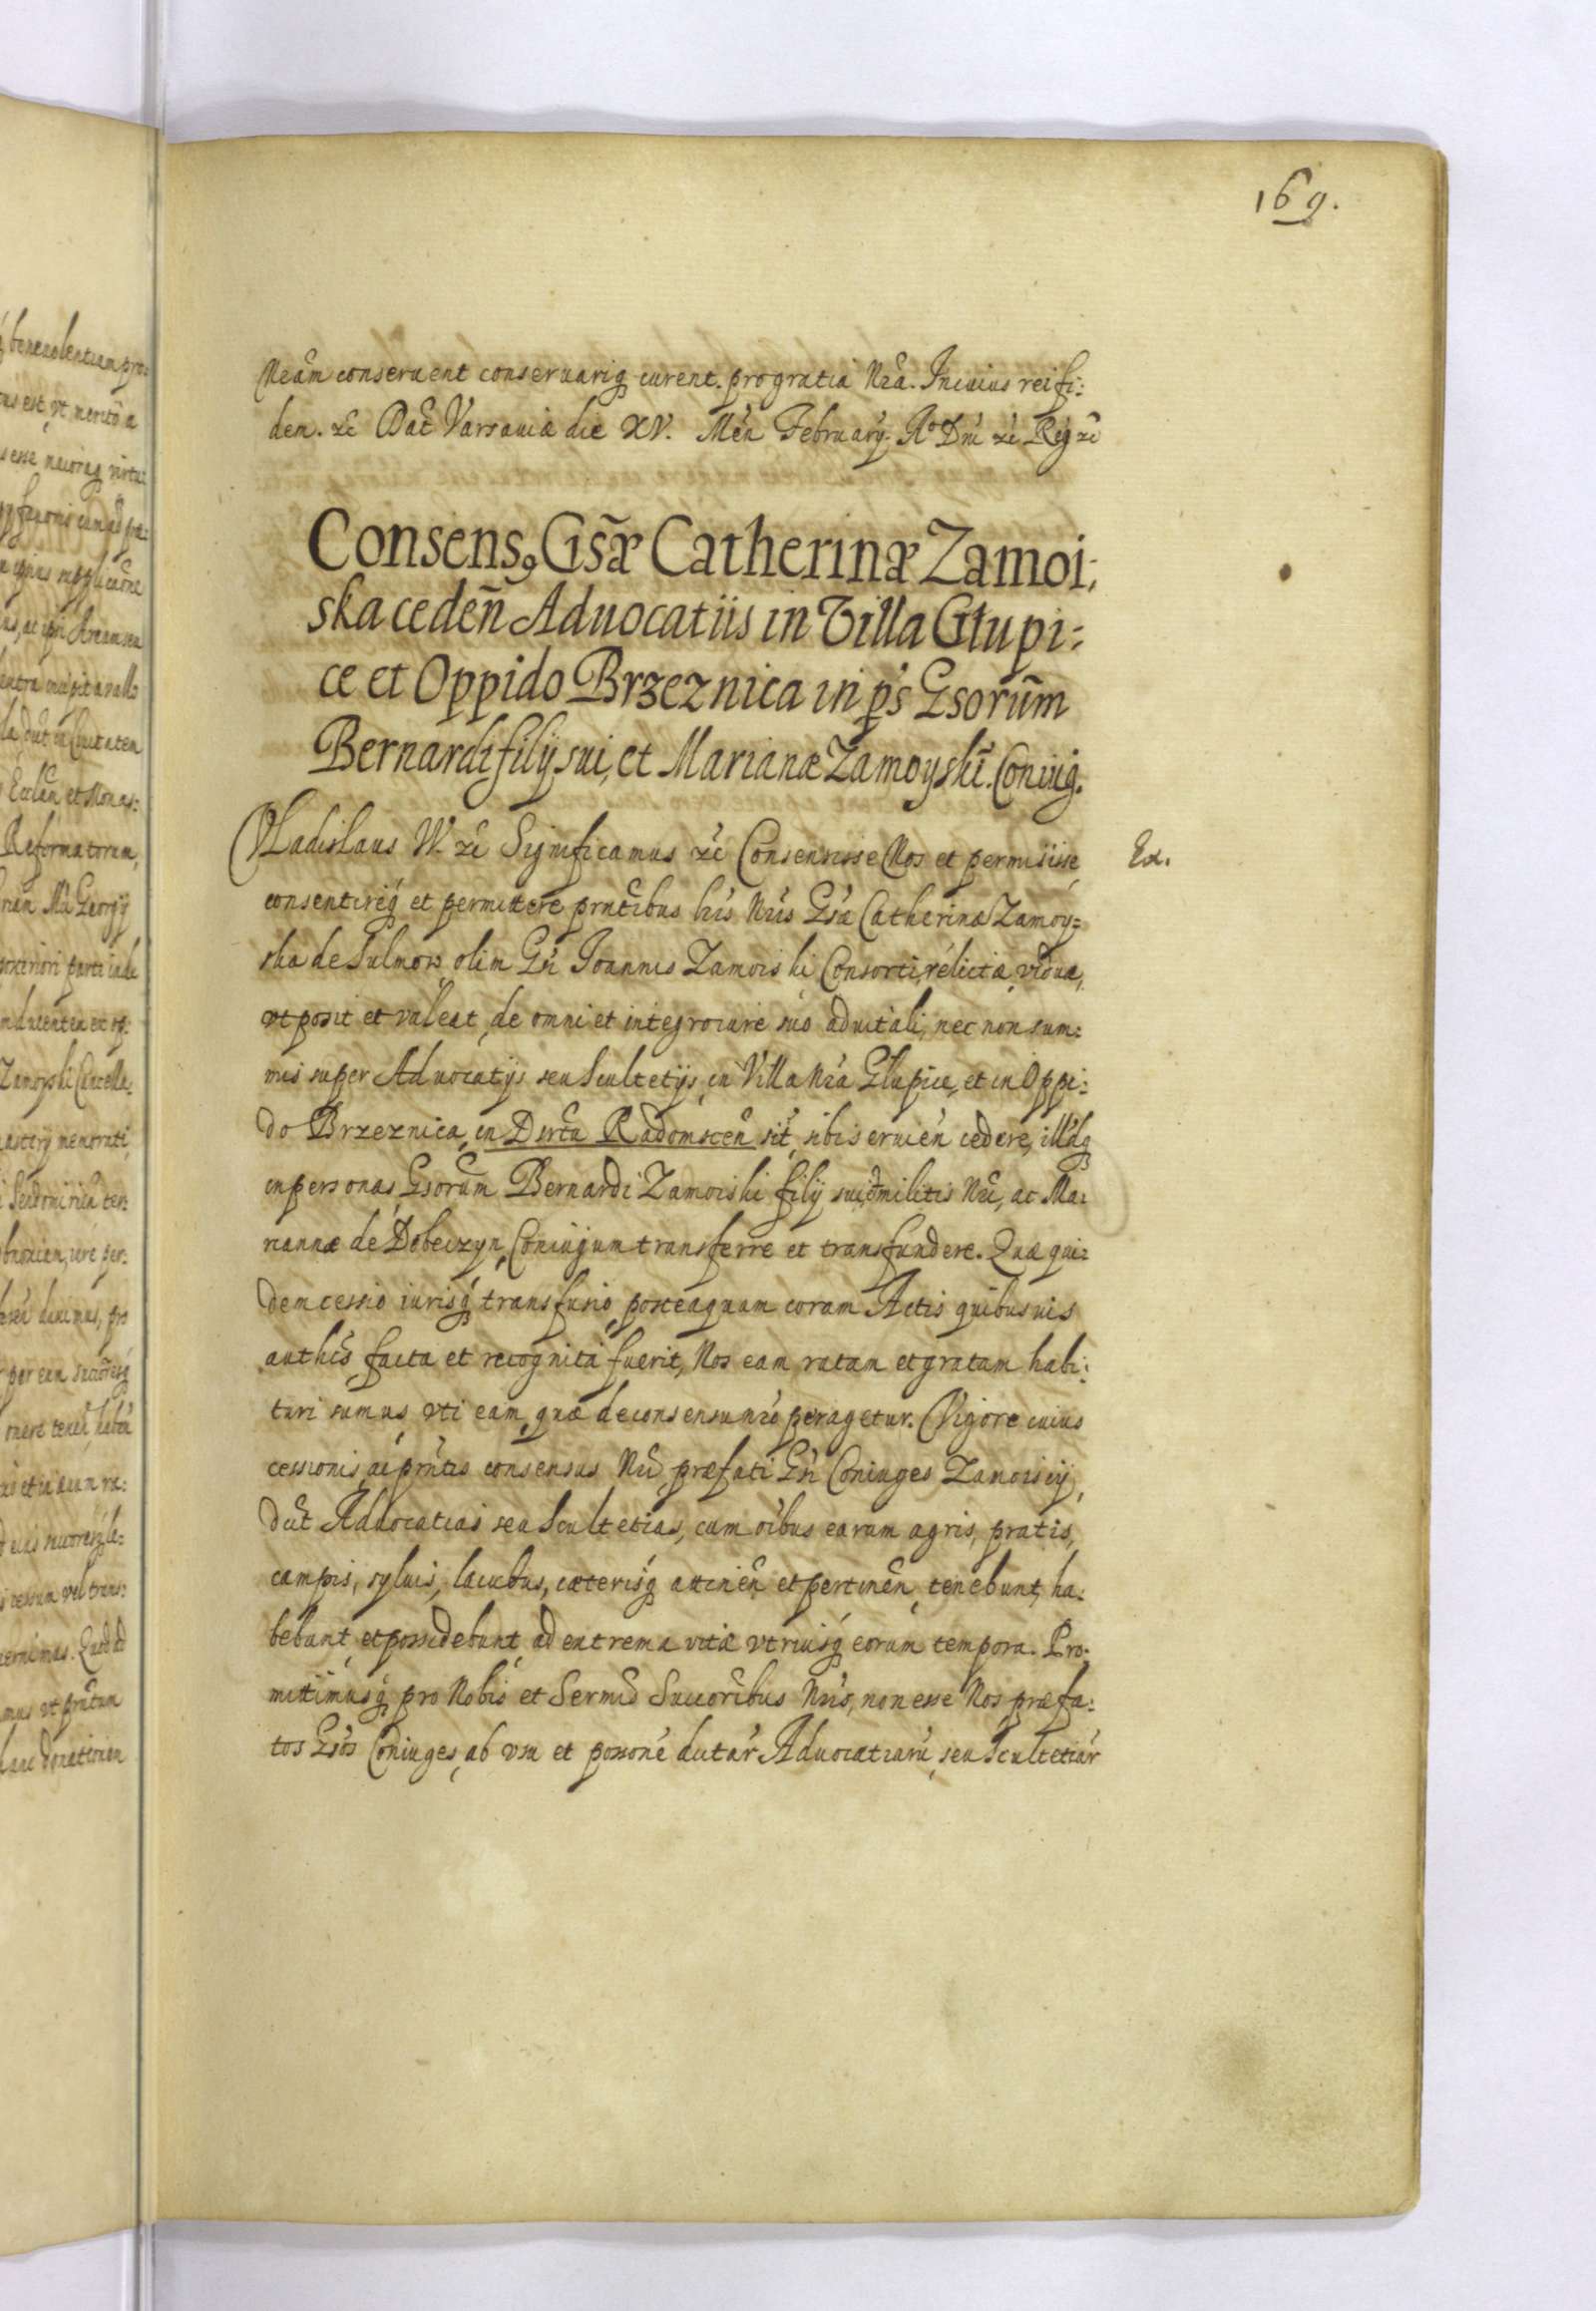 169.
Neam conseruent conseruariq curent. pro gratia Nra. In cuius rei fi:
dem. &c Dat Varsauiæ die XV. Men February. Ao Dni &c Reg &c
Consens9 Gsæ Catherinæ Zamoi:
ska ceden Aduocatiis in Villa Glupi:
ce et Oppido Brzeznica in ps Gsorum
Bernardi filij sui, et Marianæ Zamoyski. Coniug.
Vladislaus IV. &c Significamus &c Consensisse Nos et permisisse
Ex.
consentireq et permittere prntibus lris Nris Gsæ Catherinæ Zamoy:
ska de Sulmow, olim Gsi Joannis Zamoiski Consorti, relictæ viduæ,
vt possit et valeat, de omni et integro iure suo aduitali, nec non sum:
mis super Aduocatijs seu Scultetijs, in Villa Nra Glupice, et in Oppi:
do Brzeznica, in Dirctu Radomscen sit, sibi seruien cedere, illudq
in personas Gsorum Bernardi Zamoiski filij sui, militis Nri, ac Ma:
riannæ de Dobeczyn, Coniugum transferre et transfundere. Quæ qui:
dem cessio iurisq transfusio, posteaquam coram Actis quibusuis
authcis facta et recognita fuerit, Nos eam ratam et gratam habi:
turi sumus, vti eam, quæ de consensu nro peragetur. Vigore cuius
cessionis, ac prntis consensus Nri, præfati Gsi Coniuges Zamoiscij,
dict Aduocatias seu Scultetias, cum oibus earum agris, pratis,
campis, syluis, lacubus, cæterisq attinen et pertinen, tenebunt, ha:
bebunt, et possidebunt, ad extrema vitæ vtriusq eorum tempora. Pro:
mittimusq pro Nobis et Sermis Succoribus Nris, non esse Nos præfa:
tos Gsos Coniuges, ab vsu et possone dictar Aduocatiaru, seu Scultetiar